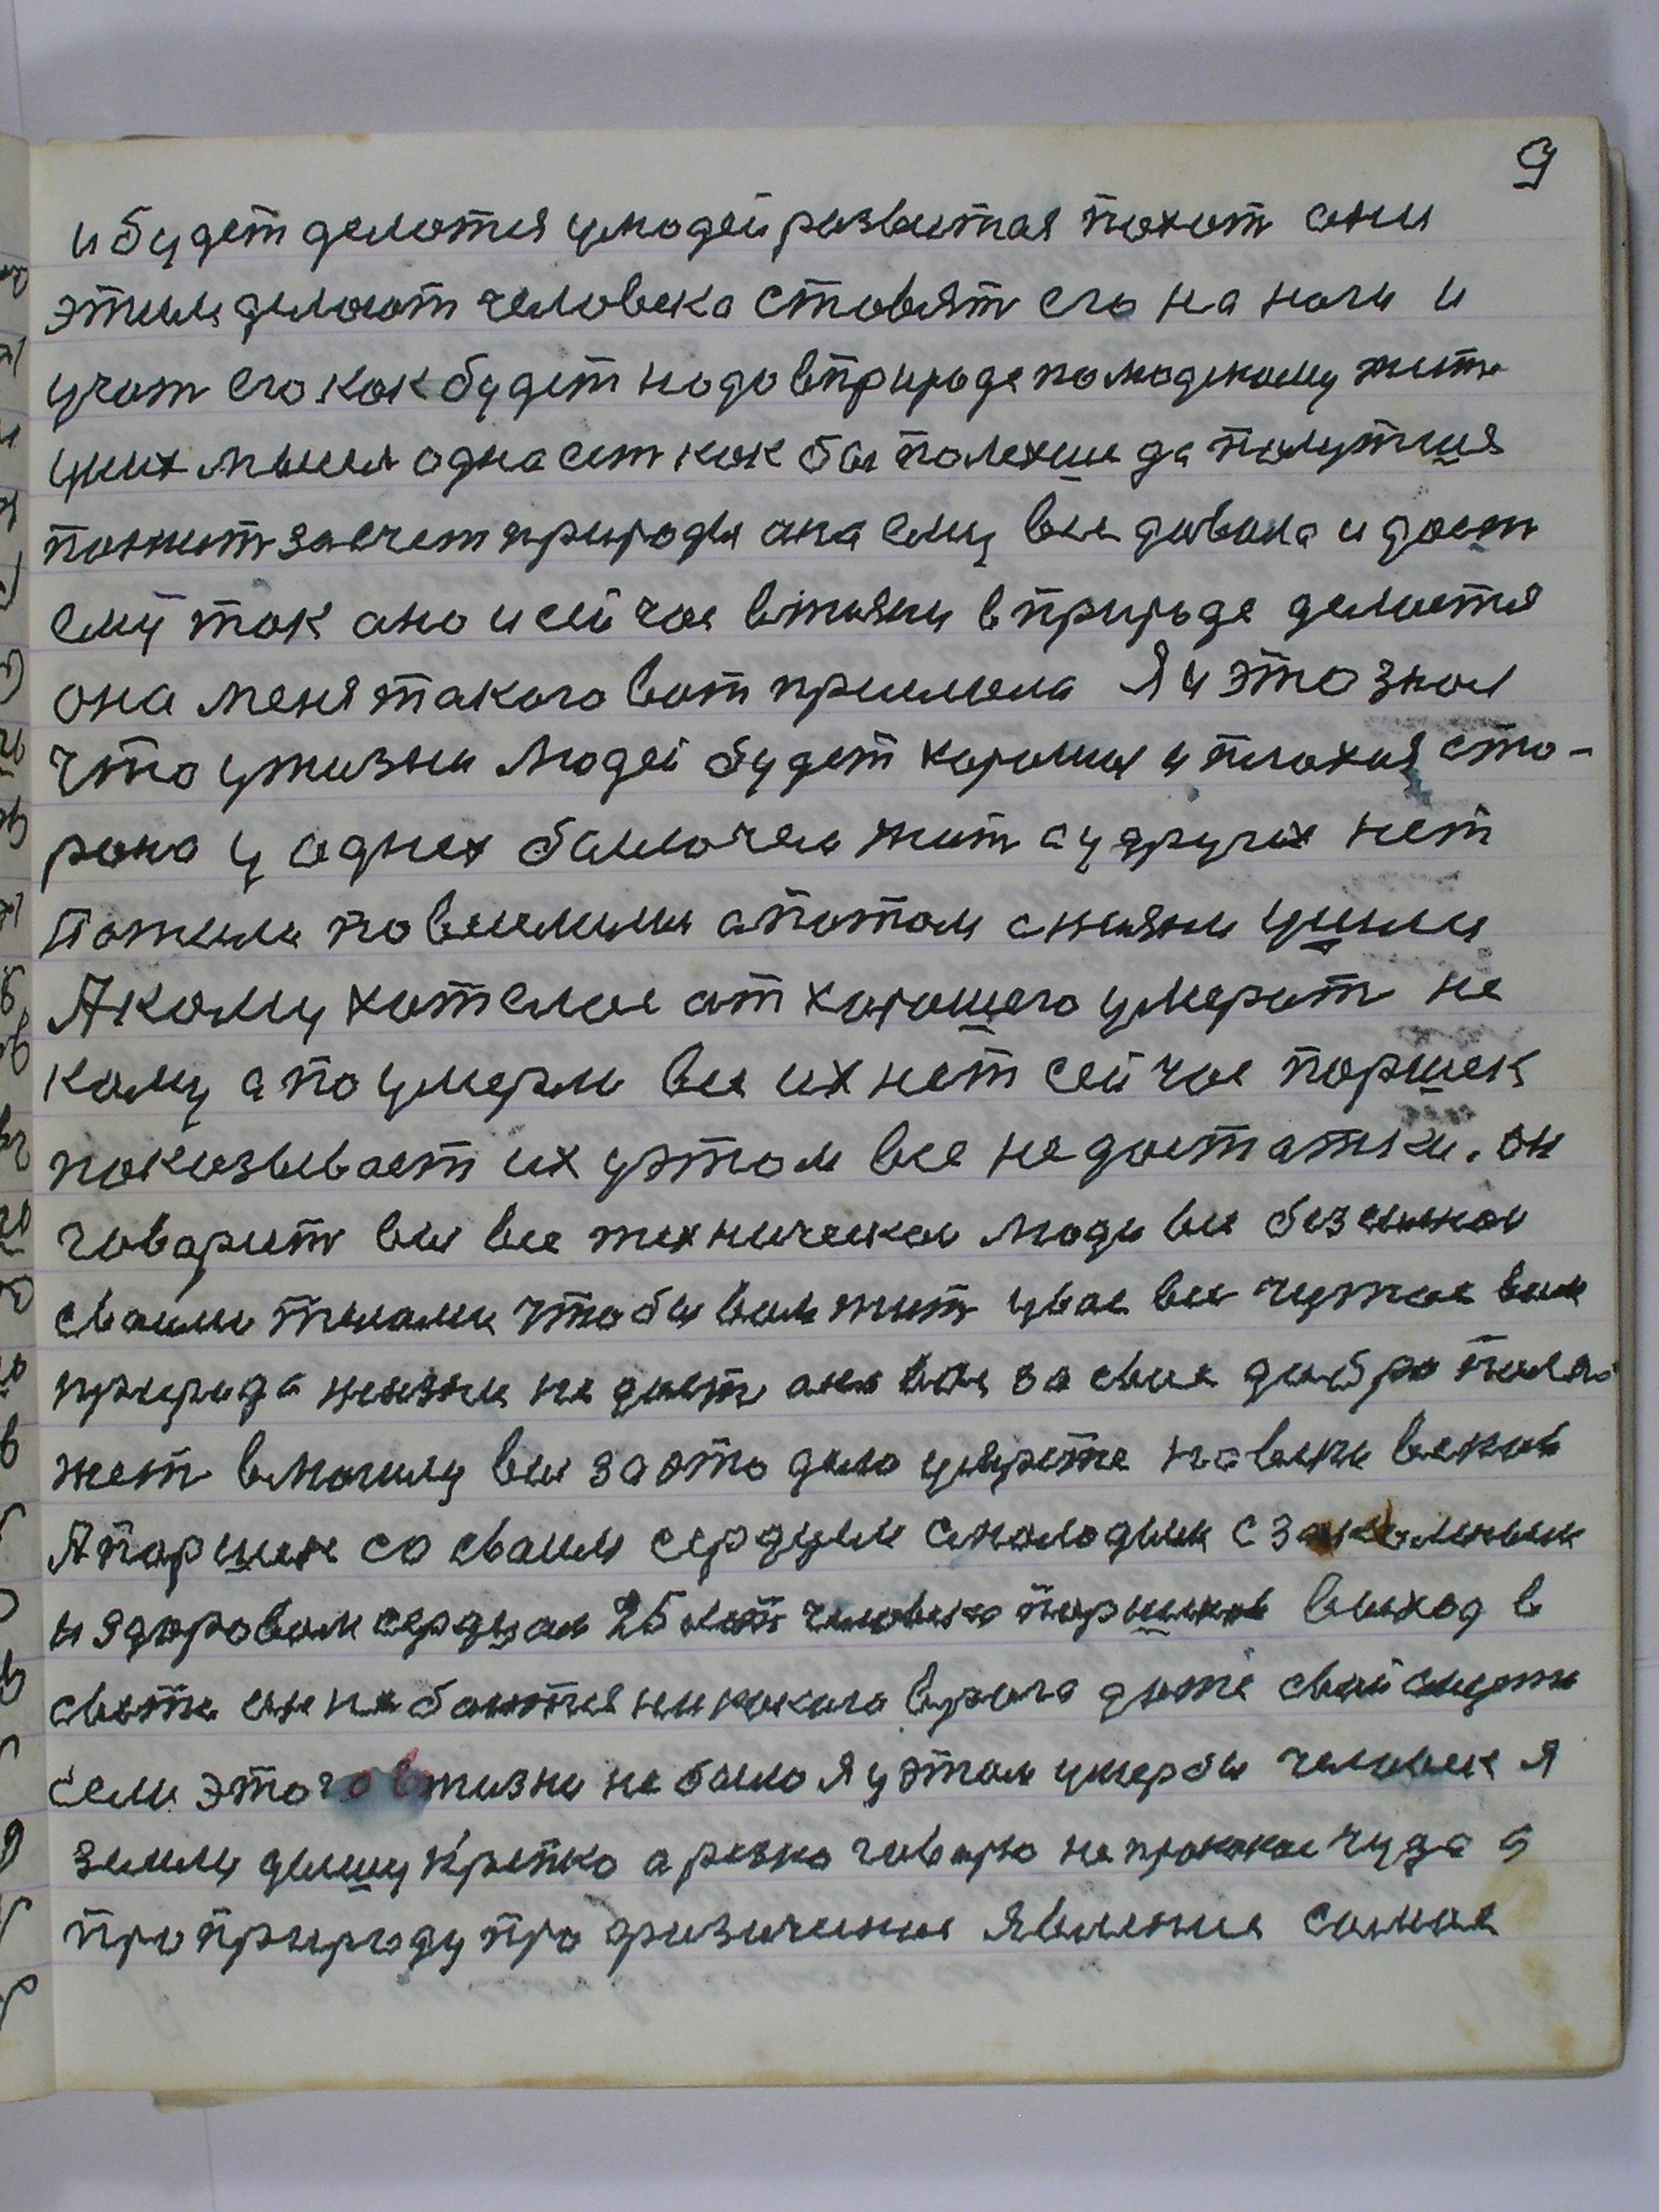 9
и будет делотся улюдей развитая похот они
этим делают человека ставят его на ноги и
учат его как будет надо вприроде полюдскому жить
уних мысля одна ест как бы полехше да полутшя
пожит засчет природы она ему все давала и дает
ему так ано и сейчас вжизни вприроде делается
она меня такого вот приняла Я и это знал
что ужизни людей будет хорошия и плохия сто-
рона у однех было чем жит а у других нет
Пожили повеселили а потом сжизни ушли
А кому хотелос от хорошего умерат не
кому а поумерли все их нет сейчас поршек
показывает их уэтом все недостатки. он
говарит вы все технически люди вы безсилнаи
своими телами чтобы вам жит увас все чужое вам
природа жизни не даст она вас за свие дабро поло
жет вмогилу вы заэто дело умрете навеки веков
А поршек со своим сердцем смолодым сзакаленым
издоровым сердцам 25 лет человека поршек выход в
свете он не боится никакого врага даже свай смерти
если этого вжизни не было я уэтом умер бы человек я
земли дышу крепко а резко говарю не прокакое чуда а
про природу про физическия явления самое